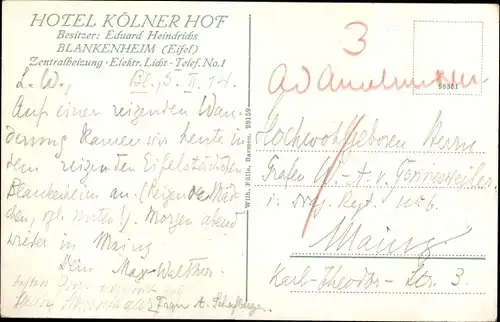 HOTEL KÖLNER HOF
Besitzer: Eduard Heindrichs
BLANKENHEIM (Eifel)
Zentralheizung · Elektr. Licht · Telef. No. 1
L. W., Bl., 5. II. 14.
Auf einer reizenden Wan-
derung kamen wir heute in
dem reizenden Eifelstädtchen
Blankenheim an. (Reizende Mäd-
chen, vgl. unten!). Morgen abend
wieder in Mainz
Dein Max-Walther
Frau A.
Wilh. Fülle, Barmen. 26159
3
98381
Hochwohlgeboren Herrn
Grafen v.
i. Regt. No 6.
Mainz
Karl-Theodor-Str. 3.